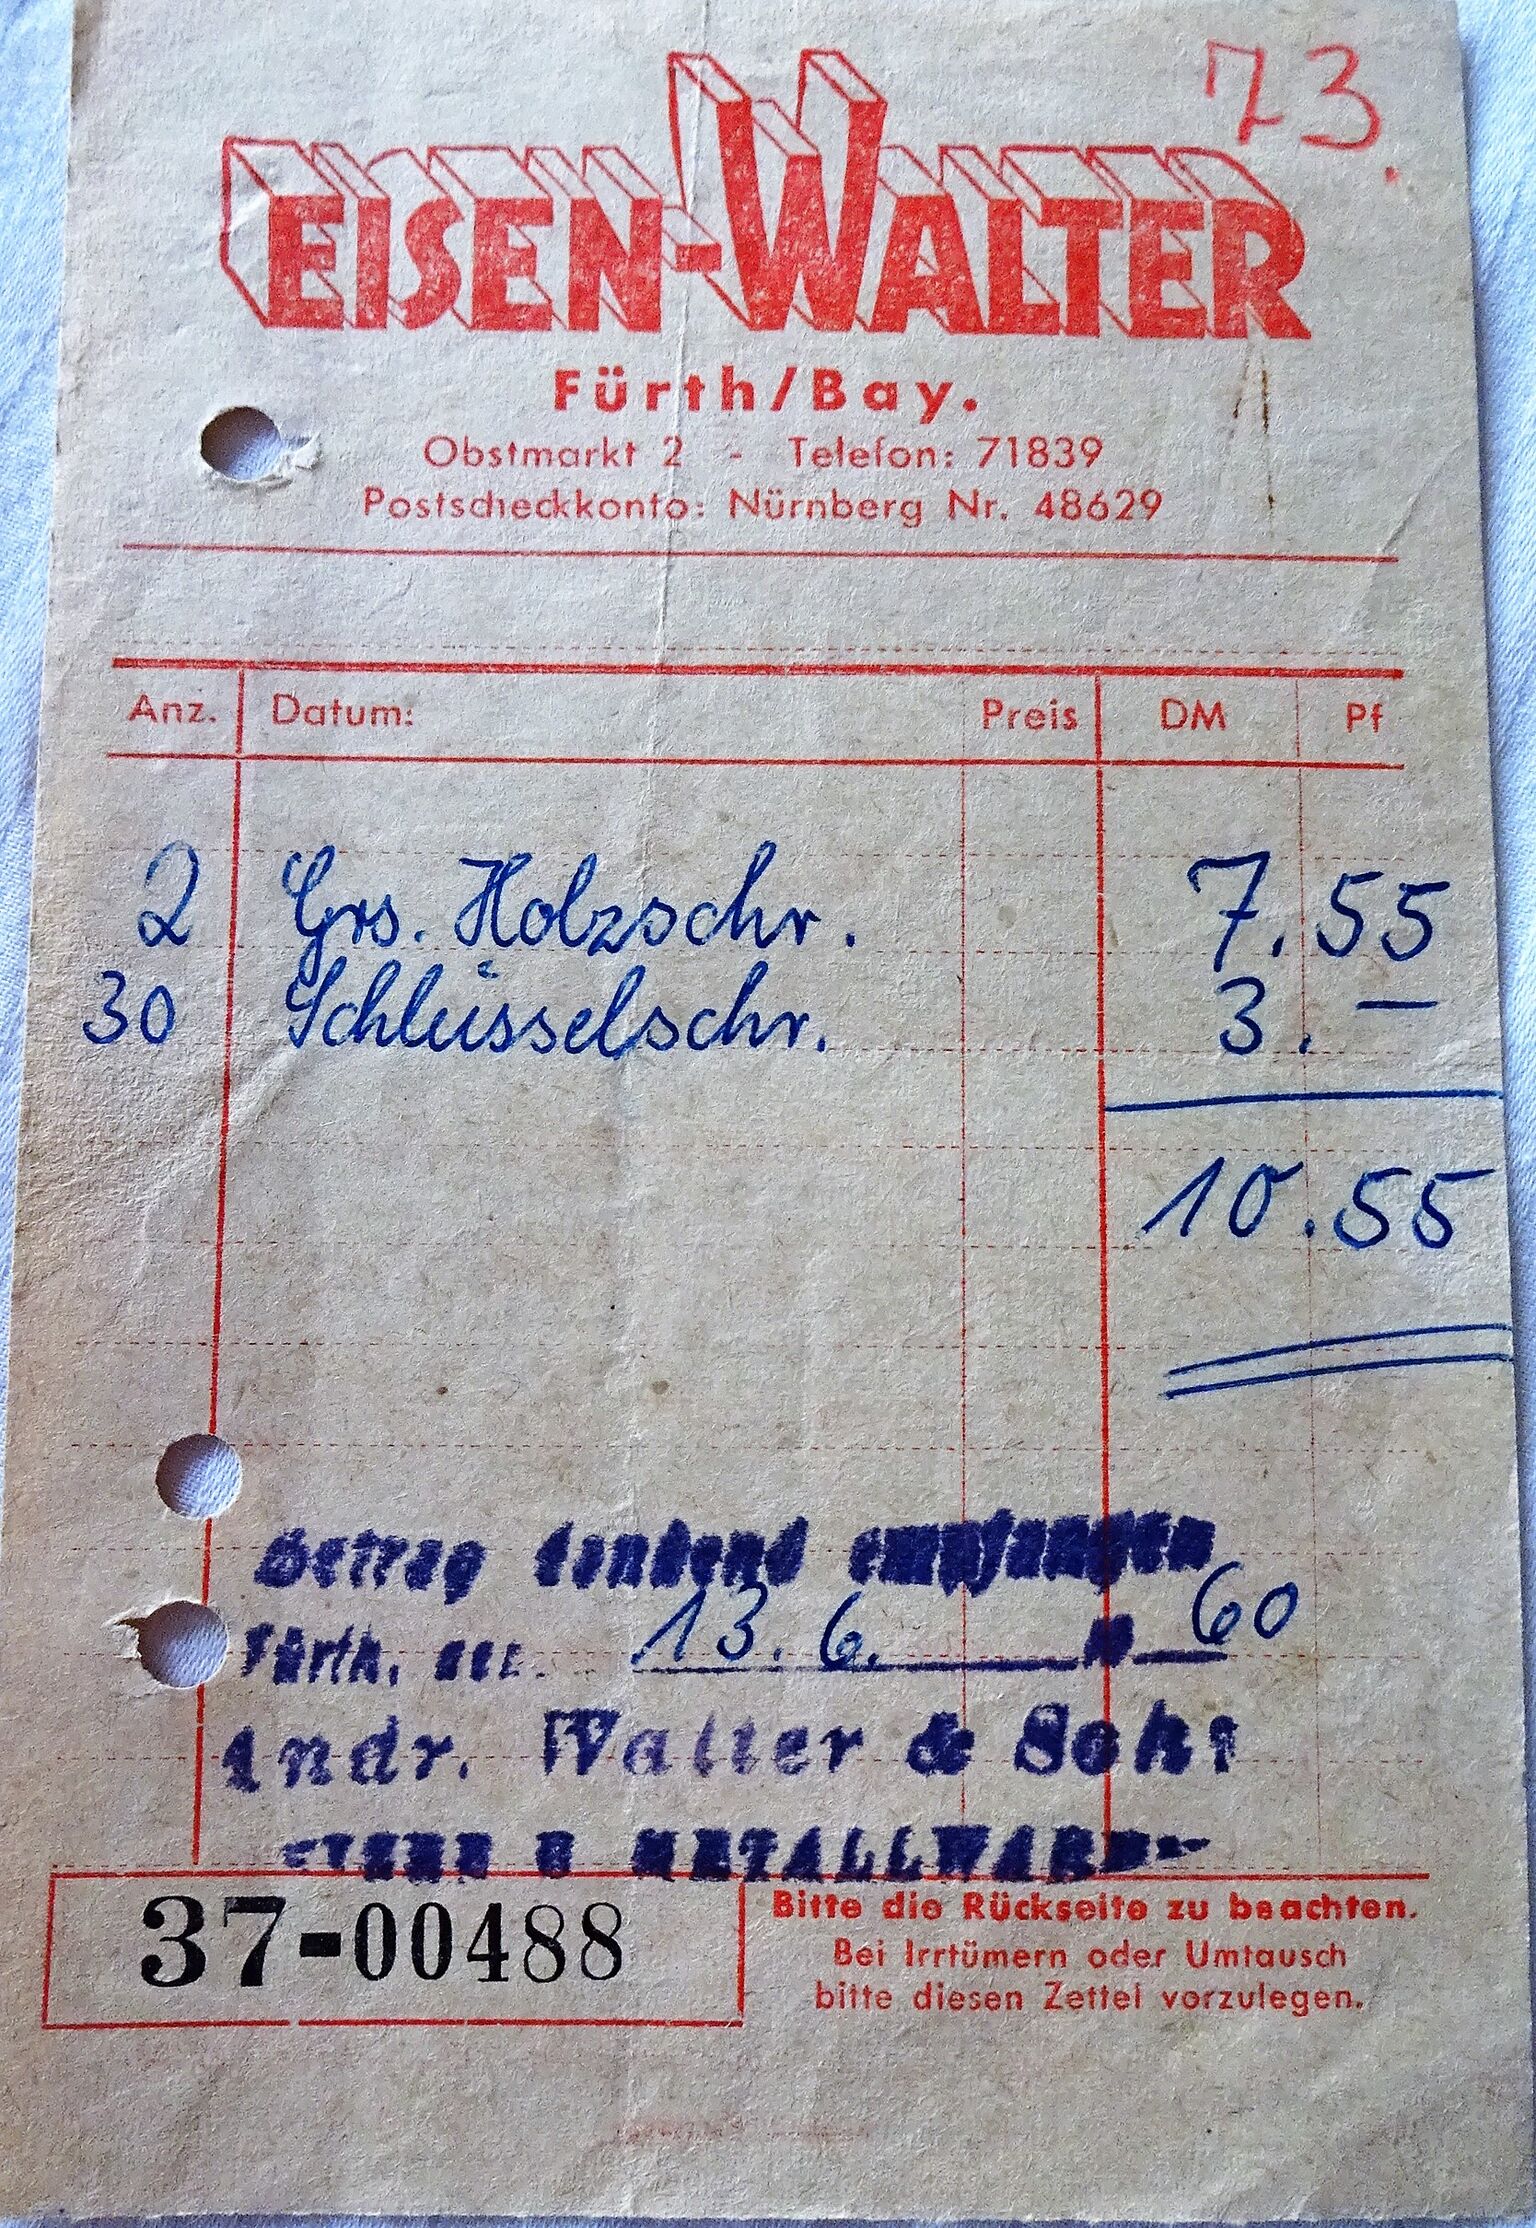 73.
EISEN-WALTER
Fürth/Bay.
Obstmarkt 2 - Telefon: 71839
Postscheckkonto: Nürnberg Nr. 48629
Anz. Datum: Preis DM Pf
2 Grs. Holzschr. 7.55
30 Schlüsselschr. 3.—
10.55
Betrag dankend empfangen
Fürth, den 13.6. 19 60
Andr. Walter & Sohn
EISEN U METALLWAREN
37-00488
Bitte die Rückseite zu beachten.
Bei Irrtümern oder Umtausch
bitte diesen Zettel vorzulegen.